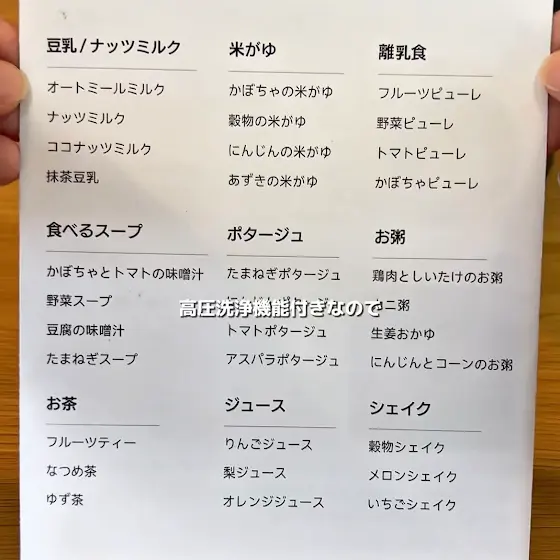 豆乳/ナッツミルク
オートミールミルク
ナッツミルク
ココナッツミルク
抹茶豆乳
米がゆ
かぼちゃの米がゆ
穀物の米がゆ
にんじんの米がゆ
あずきの米がゆ
離乳食
フルーツピューレ
野菜ピューレ
トマトピューレ
かぼちゃピューレ
食べるスープ
かぼちゃとトマトの味噌汁
野菜スープ
豆腐の味噌汁
たまねぎスープ
ポタージュ
たまねぎポタージュ
トマトポタージュ
アスパラポタージュ
お粥
鶏肉としいたけのお粥
ニ粥
生姜おかゆ
にんじんとコーンのお粥
高圧洗浄機能付きなので
お茶
フルーツティー
なつめ茶
ゆず茶
ジュース
りんごジュース
梨ジュース
オレンジジュース
シェイク
穀物シェイク
メロンシェイク
いちごシェイク